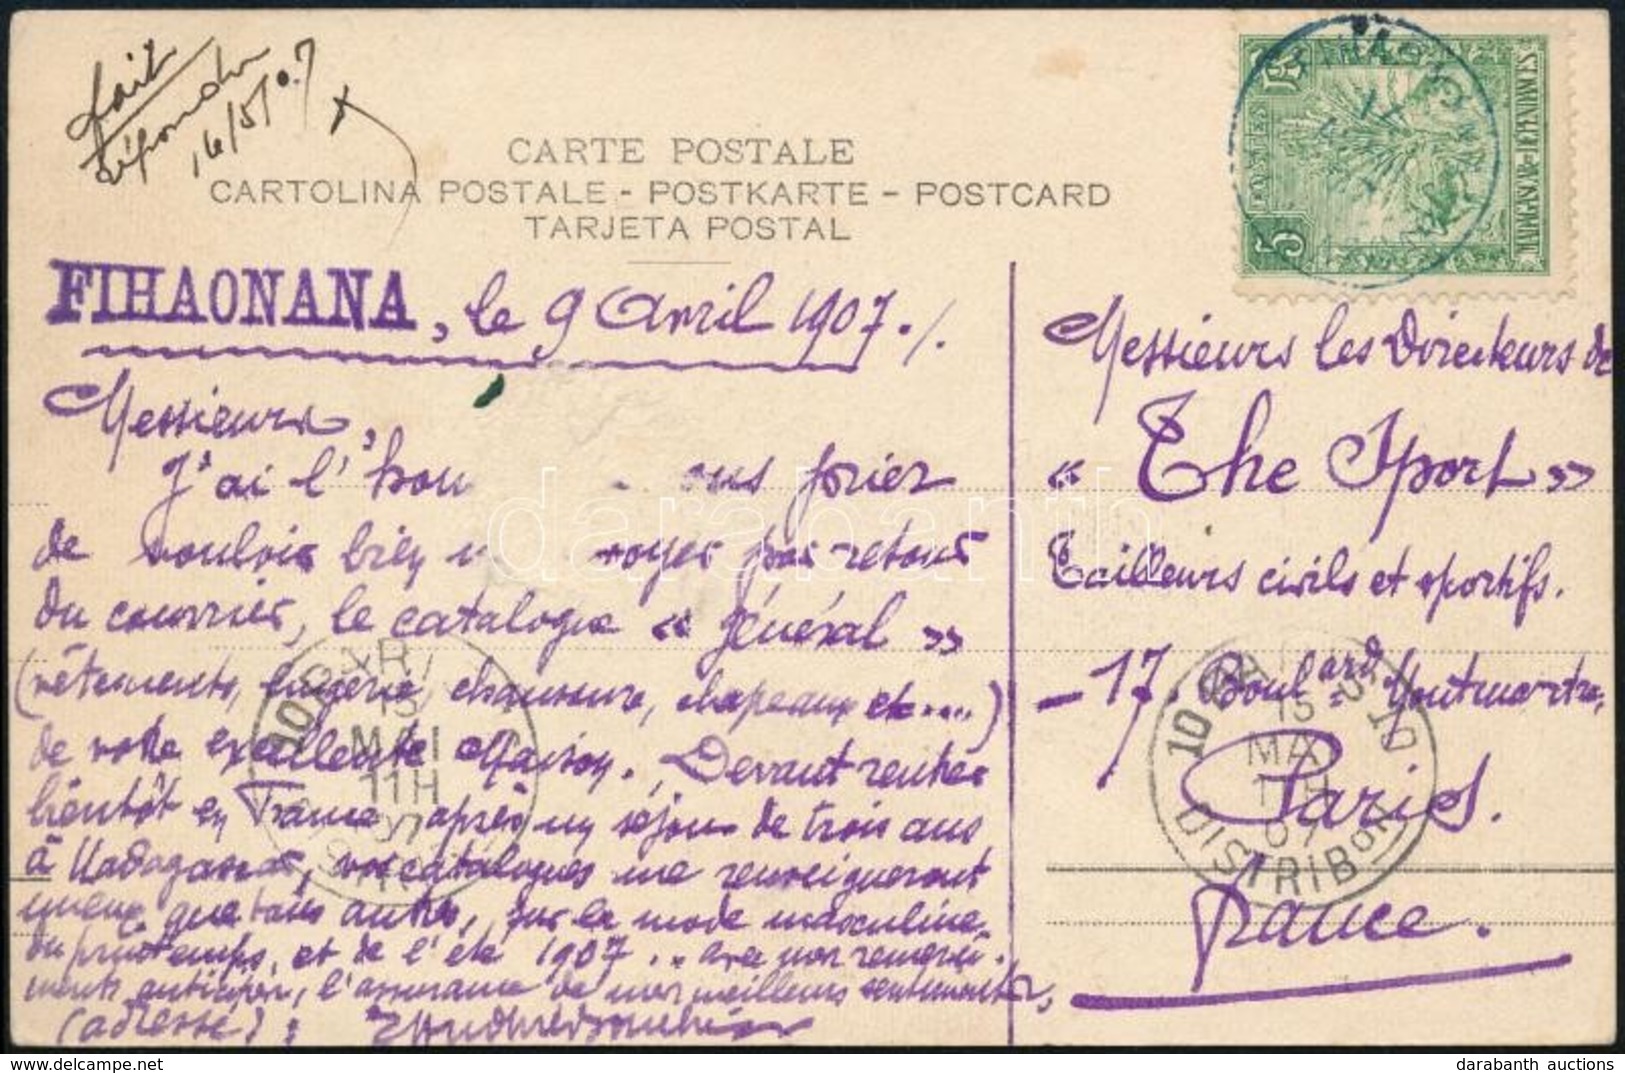 fait
répondu
16/5/07
CARTE POSTALE
CARTOLINA POSTALE - POSTKARTE - POSTCARD
TARJETA POSTAL
5 POSTES
MADAGASCAR ET DÉPENDANCES
FIHAONANA, le 9 Avril 1907./.
Messieurs,
J'ai l'hon ous prier
de vouloir bien voyer par retour
du courrier, le catalogue « général »
(vêtements, lingerie, chaussure, chapeaux etc....)
de votre excellente Maison. Devant rentrer
bientôt en France, après un séjour de trois ans
à Madagascar, vos catalogues me renseigneront
mieux que tous autres, sur la mode masculine,
du printemps, et de l'été 1907... avec mes remercî-
ments anticipés, l'assurance de mes meilleurs sentiments,
(adresse):
Messieurs les Directeurs de
« The Sport »
Tailleurs civils et sportifs.
- 17. Boulard Montmartre,
Paris.
France.
15
MAI
11H
07
15
MAI
11H
07
DISTRIBon
darabanth
darabanth auctions